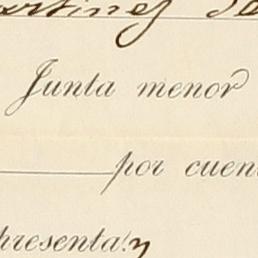 artinez
Junta menor
por cuen
presenta